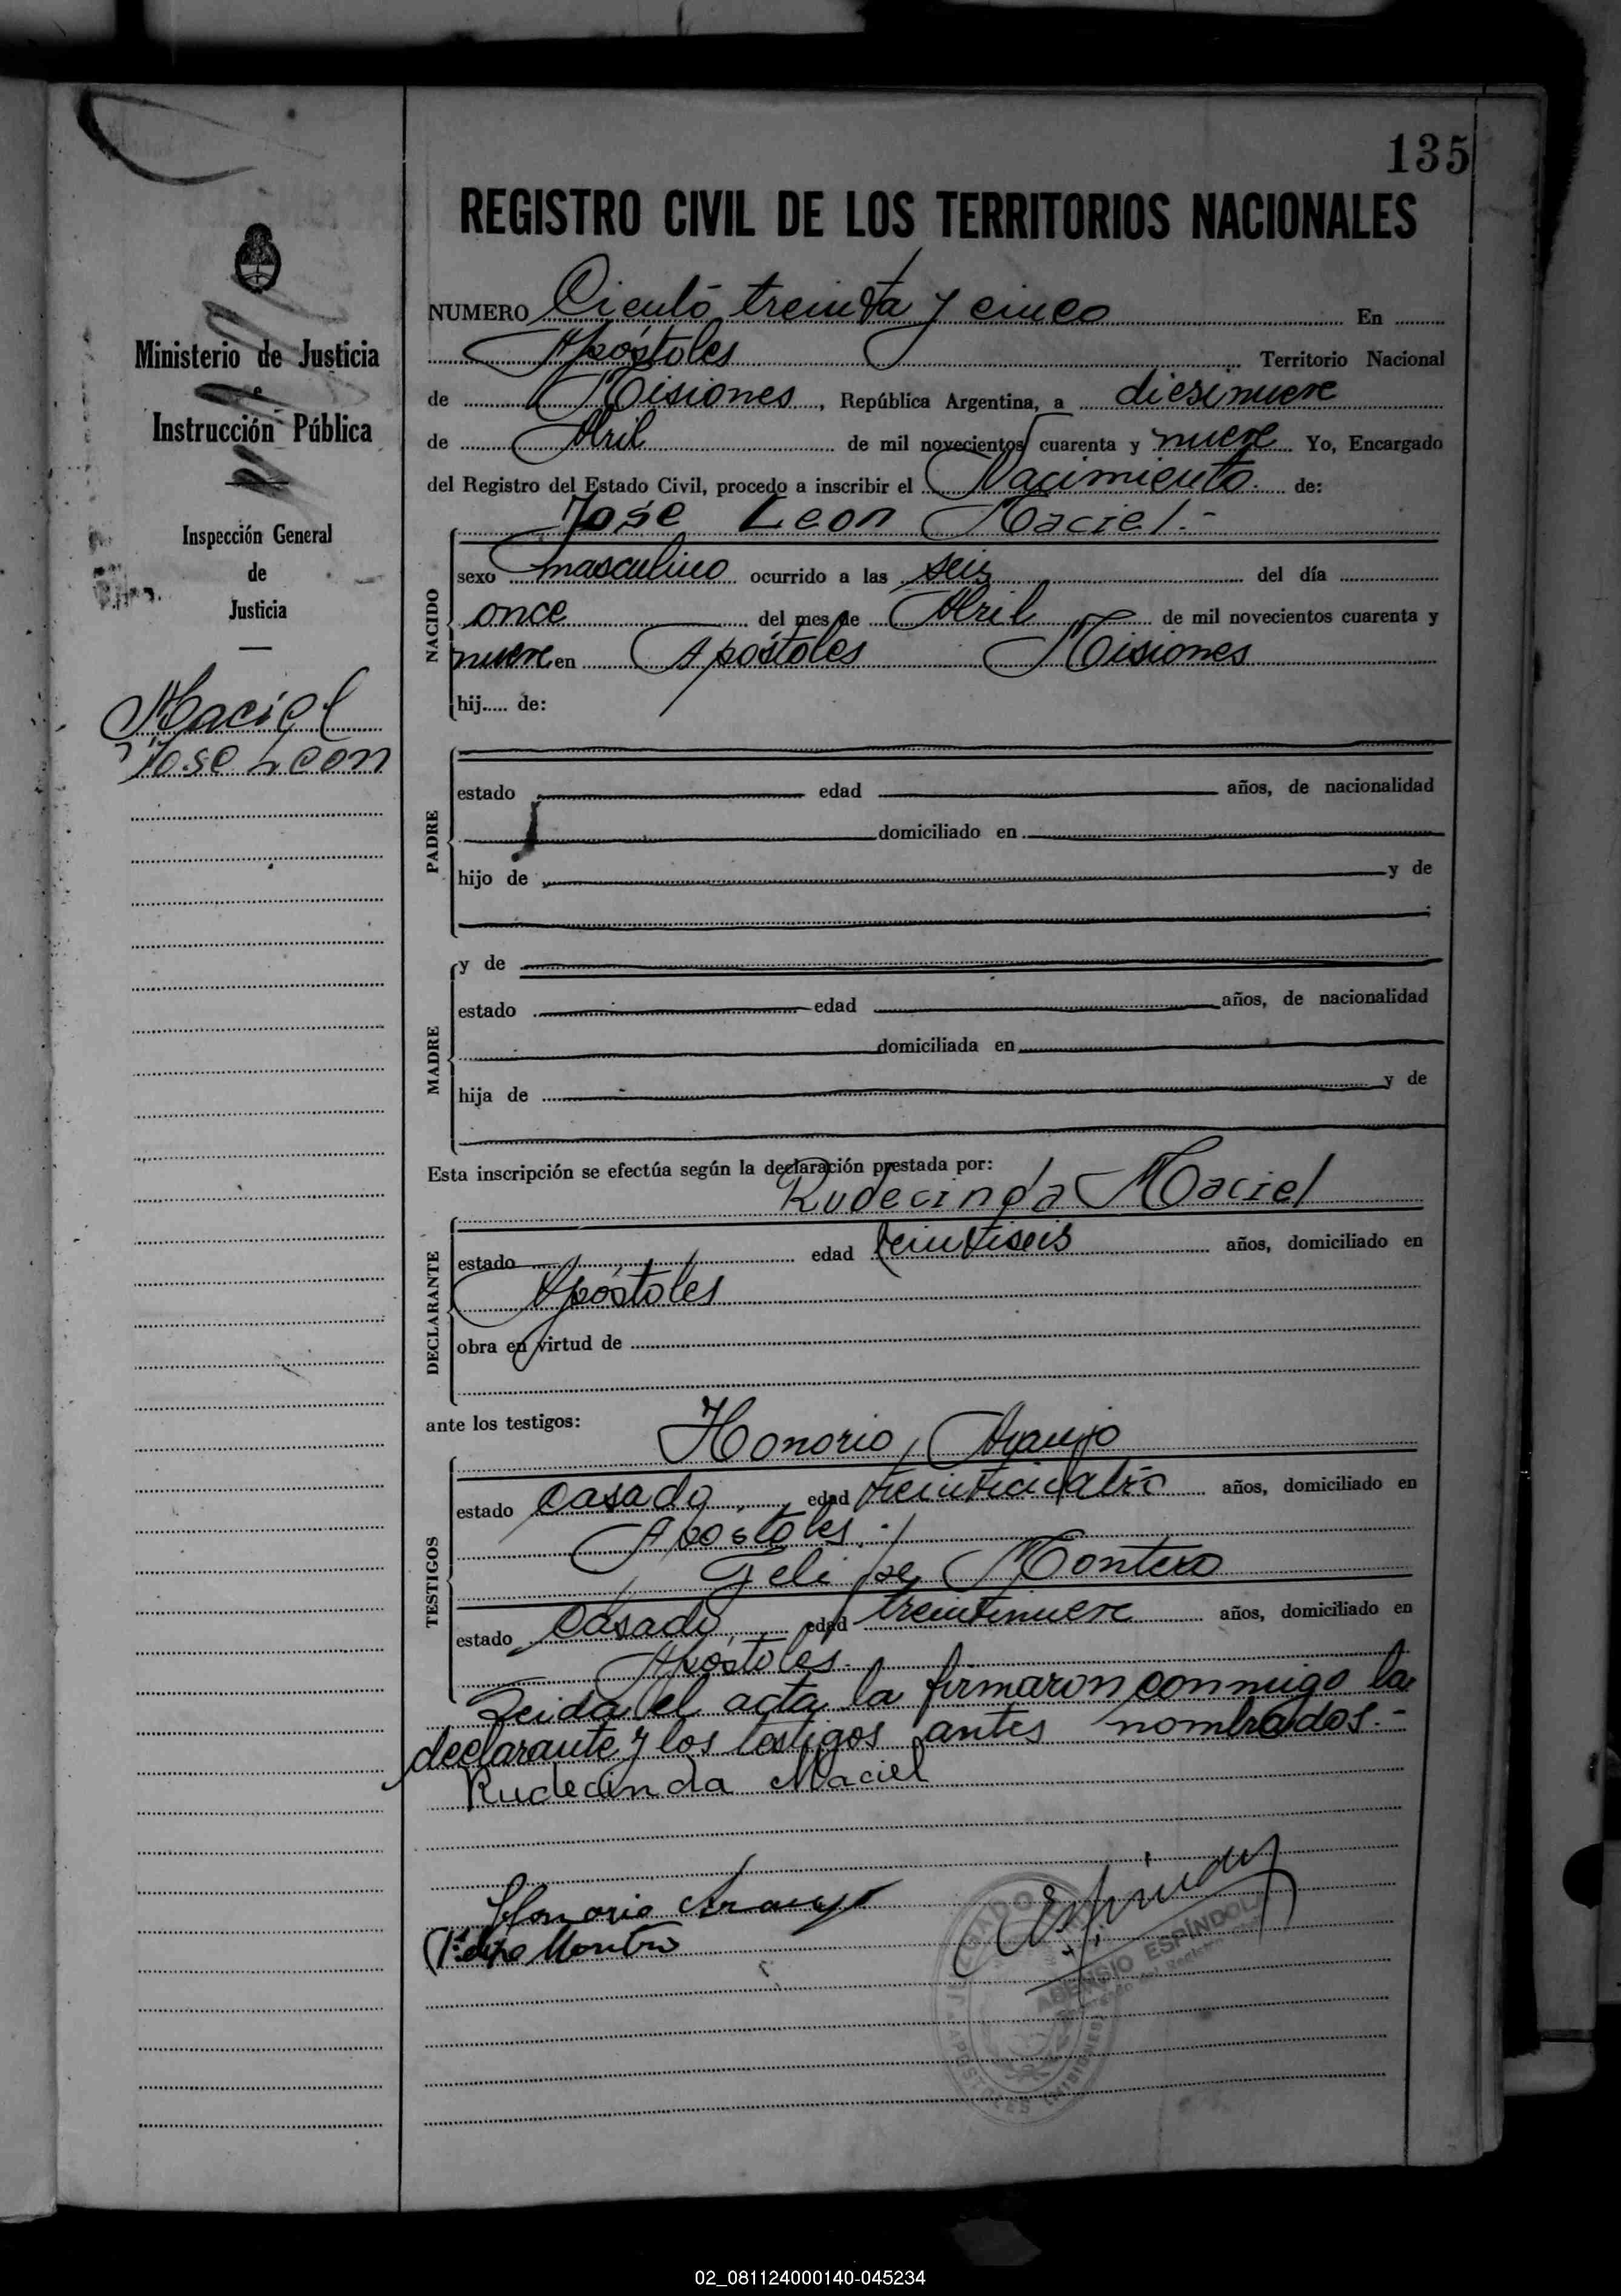 135
REGISTRO CIVIL DE LOS TERRITORIOS NACIONALES
NUMERO Cientó treinta y cinco En
Apóstoles Territorio Nacional
de Misiones, República Argentina, a diesinueve
de Abril de mil novecientos cuarenta y nueve Yo, Encargado
del Registro del Estado Civil, procedo a inscribir el Nacimiento de:
José Leon Maciel.-
NACIDO
sexo masculino ocurrido a las seis del día
once del mes de Abril de mil novecientos cuarenta y
nueve en Apóstoles Misiones
hij..... de:
PADRE
estado edad años, de nacionalidad
domiciliado en
hijo de y de
MADRE
y de
estado edad años, de nacionalidad
domiciliada en
hija de y de
Esta inscripción se efectúa según la declaración prestada por:
Rudecinda Maciel
DECLARANTE
estado edad veintiseis años, domiciliado en
Apóstoles
obra en virtud de
ante los testigos:
Honorio Araujo
TESTIGOS
estado casado edad treinticuatro años, domiciliado en
Apóstoles.
Felipe Montero
estado Casado edad treintinueve años, domiciliado en
Apóstoles.
Leida el acta la firmaron conmigo la
declarante y los testigos antes nombrados.-
Rudecinda Maciel
Honorio Araujo
Felipe Montero
JUZGADO
APOSTOLES (MISIONES)
ASENSIO ESPÍNDOLA
Encargado del Registro
Ministerio de Justicia
e
Instrucción Pública
Inspección General
de
Justicia
Maciel
José Leon
02_081124000140-045234